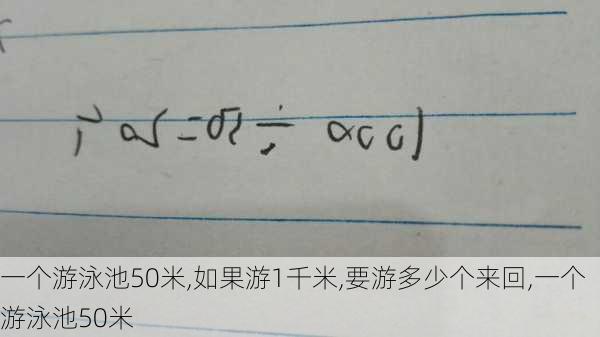 1000÷50=20个
一个游泳池50米,如果游1千米,要游多少个来回,一个
游泳池50米